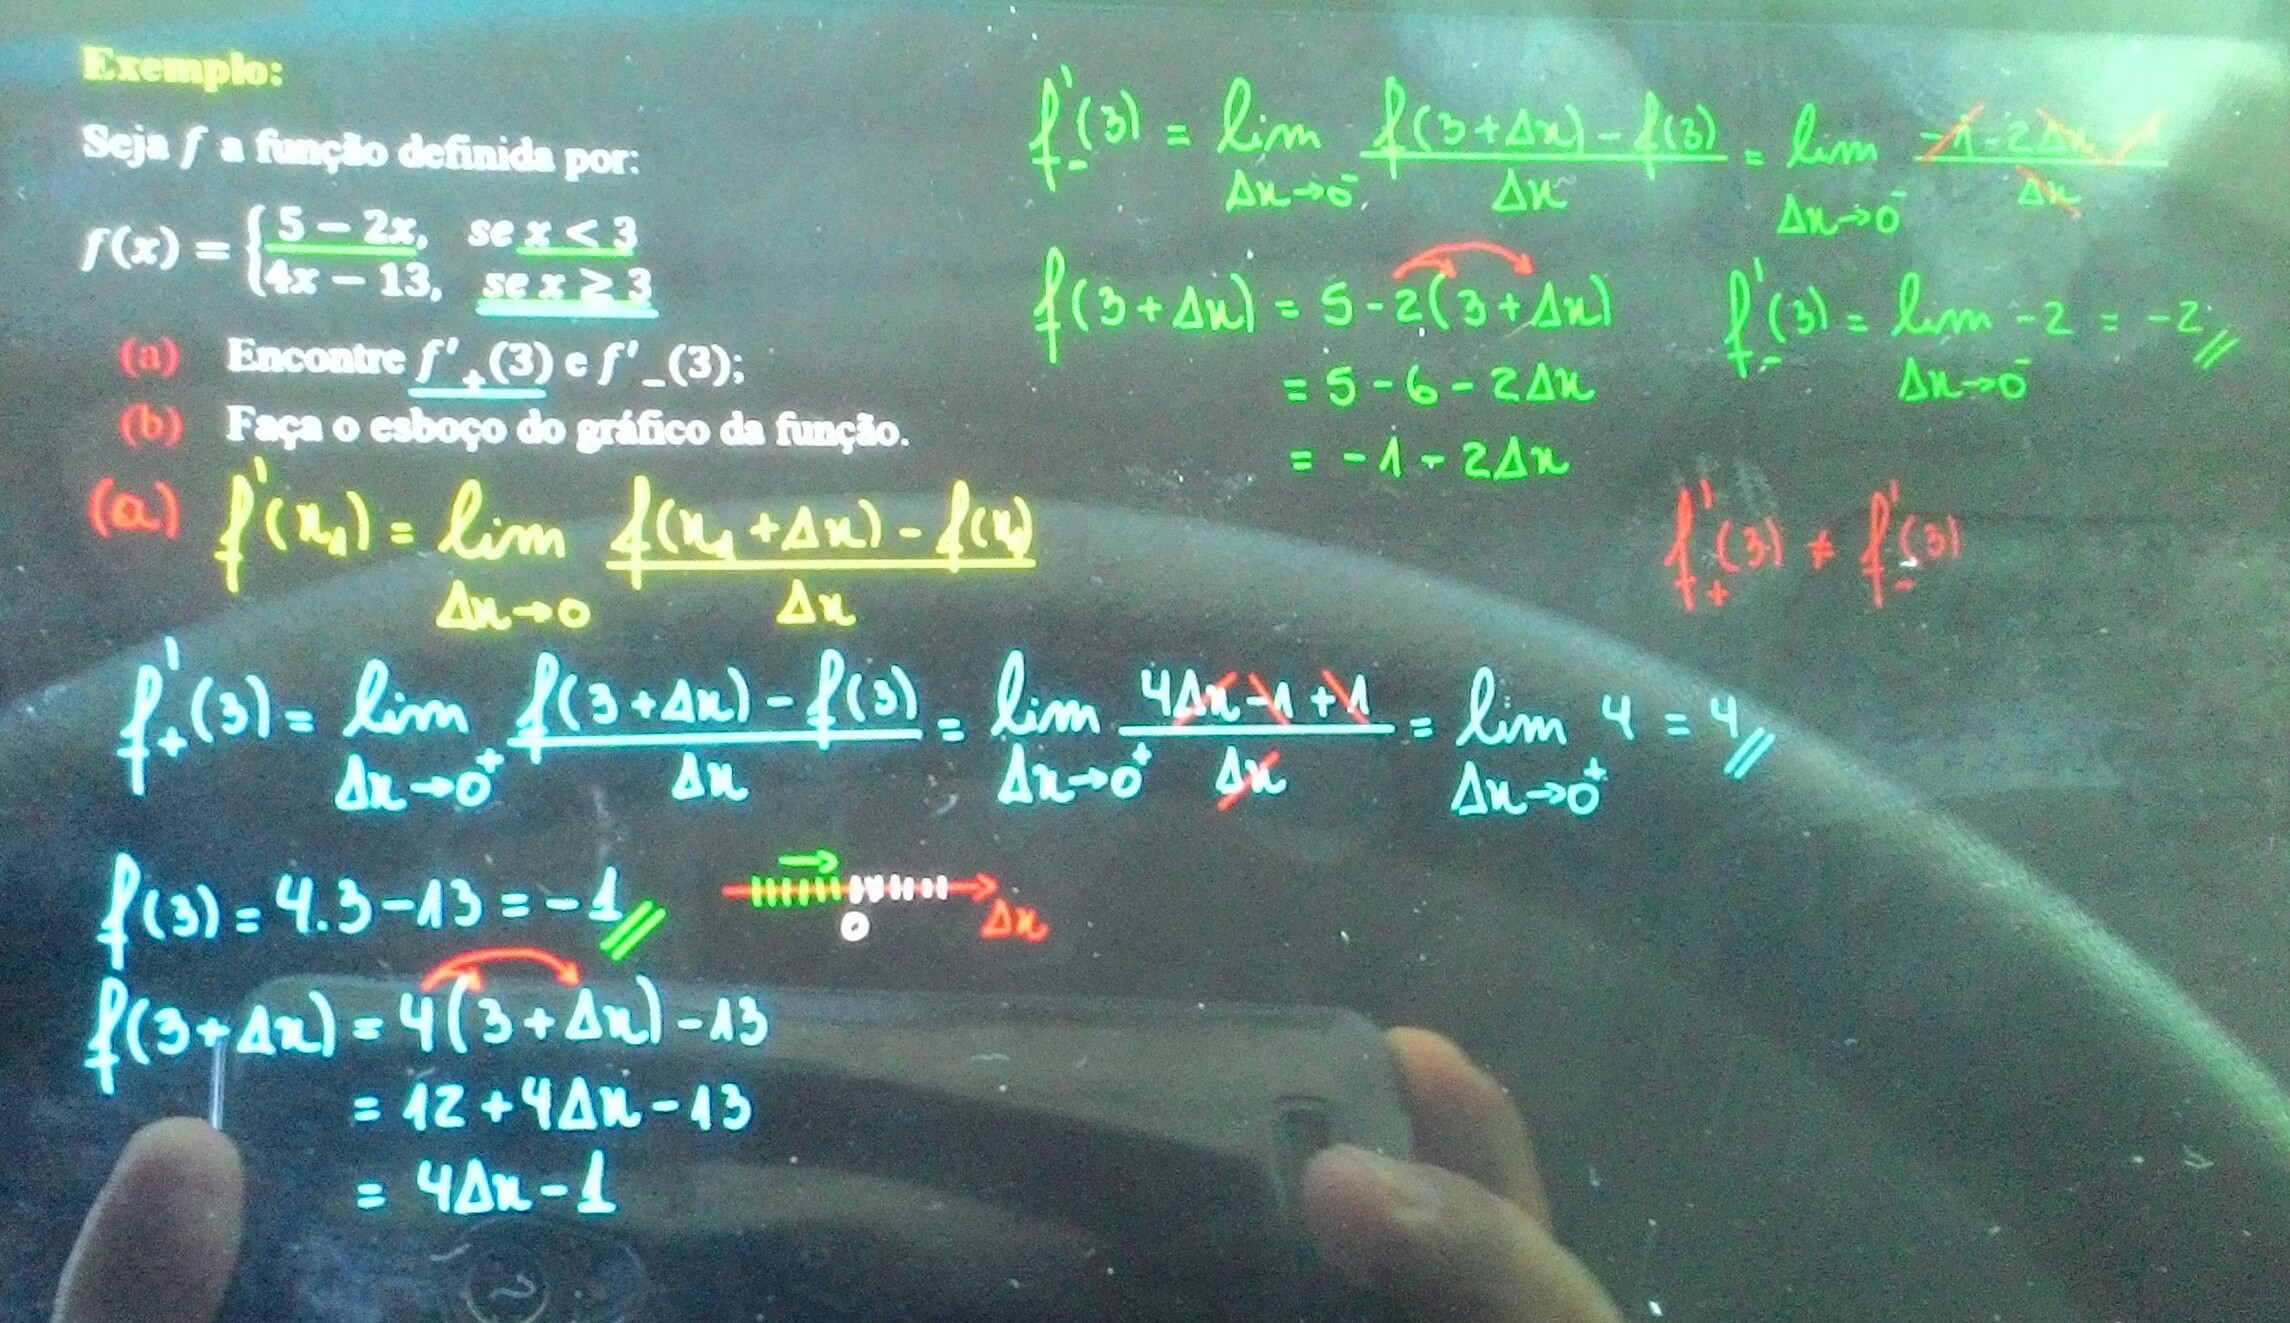 Exemplo:
Seja f a função definida por:
f(x) = { 5 − 2x, se x < 3
4x − 13, se x ≥ 3
(a) Encontre f'₊(3) e f'₋(3);
(b) Faça o esboço do gráfico da função.
(a) f'(x₁) = lim Δx→0 f(x₁ + Δx) − f(x₁) / Δx
f'₊(3) = lim Δx→0⁺ f(3 + Δx) − f(3) / Δx = lim Δx→0⁺ 4Δx − 1 + 1 / Δx = lim Δx→0⁺ 4 = 4
f(3) = 4.3 − 13 = −1
0 Δx
f(3 + Δx) = 4(3 + Δx) − 13
= 12 + 4Δx − 13
= 4Δx − 1
f'₋(3) = lim Δx→0⁻ f(3 + Δx) − f(3) / Δx = lim Δx→0⁻ −1 − 2Δx + 1 / Δx
f(3 + Δx) = 5 − 2(3 + Δx)
= 5 − 6 − 2Δx
= −1 − 2Δx
f'₋(3) = lim Δx→0⁻ −2 = −2
f'₊(3) ≠ f'₋(3)